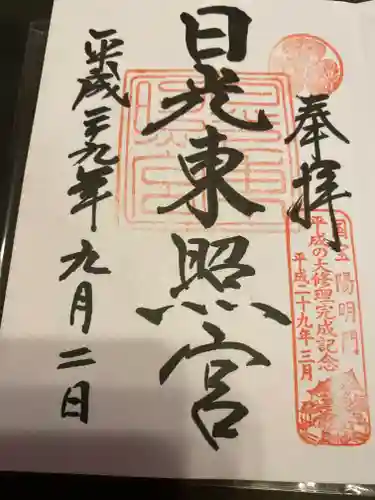 奉拝
国宝 陽明門
平成の大修理完成記念
平成二十九年三月
日光東照宮
平成二十九年九月二日